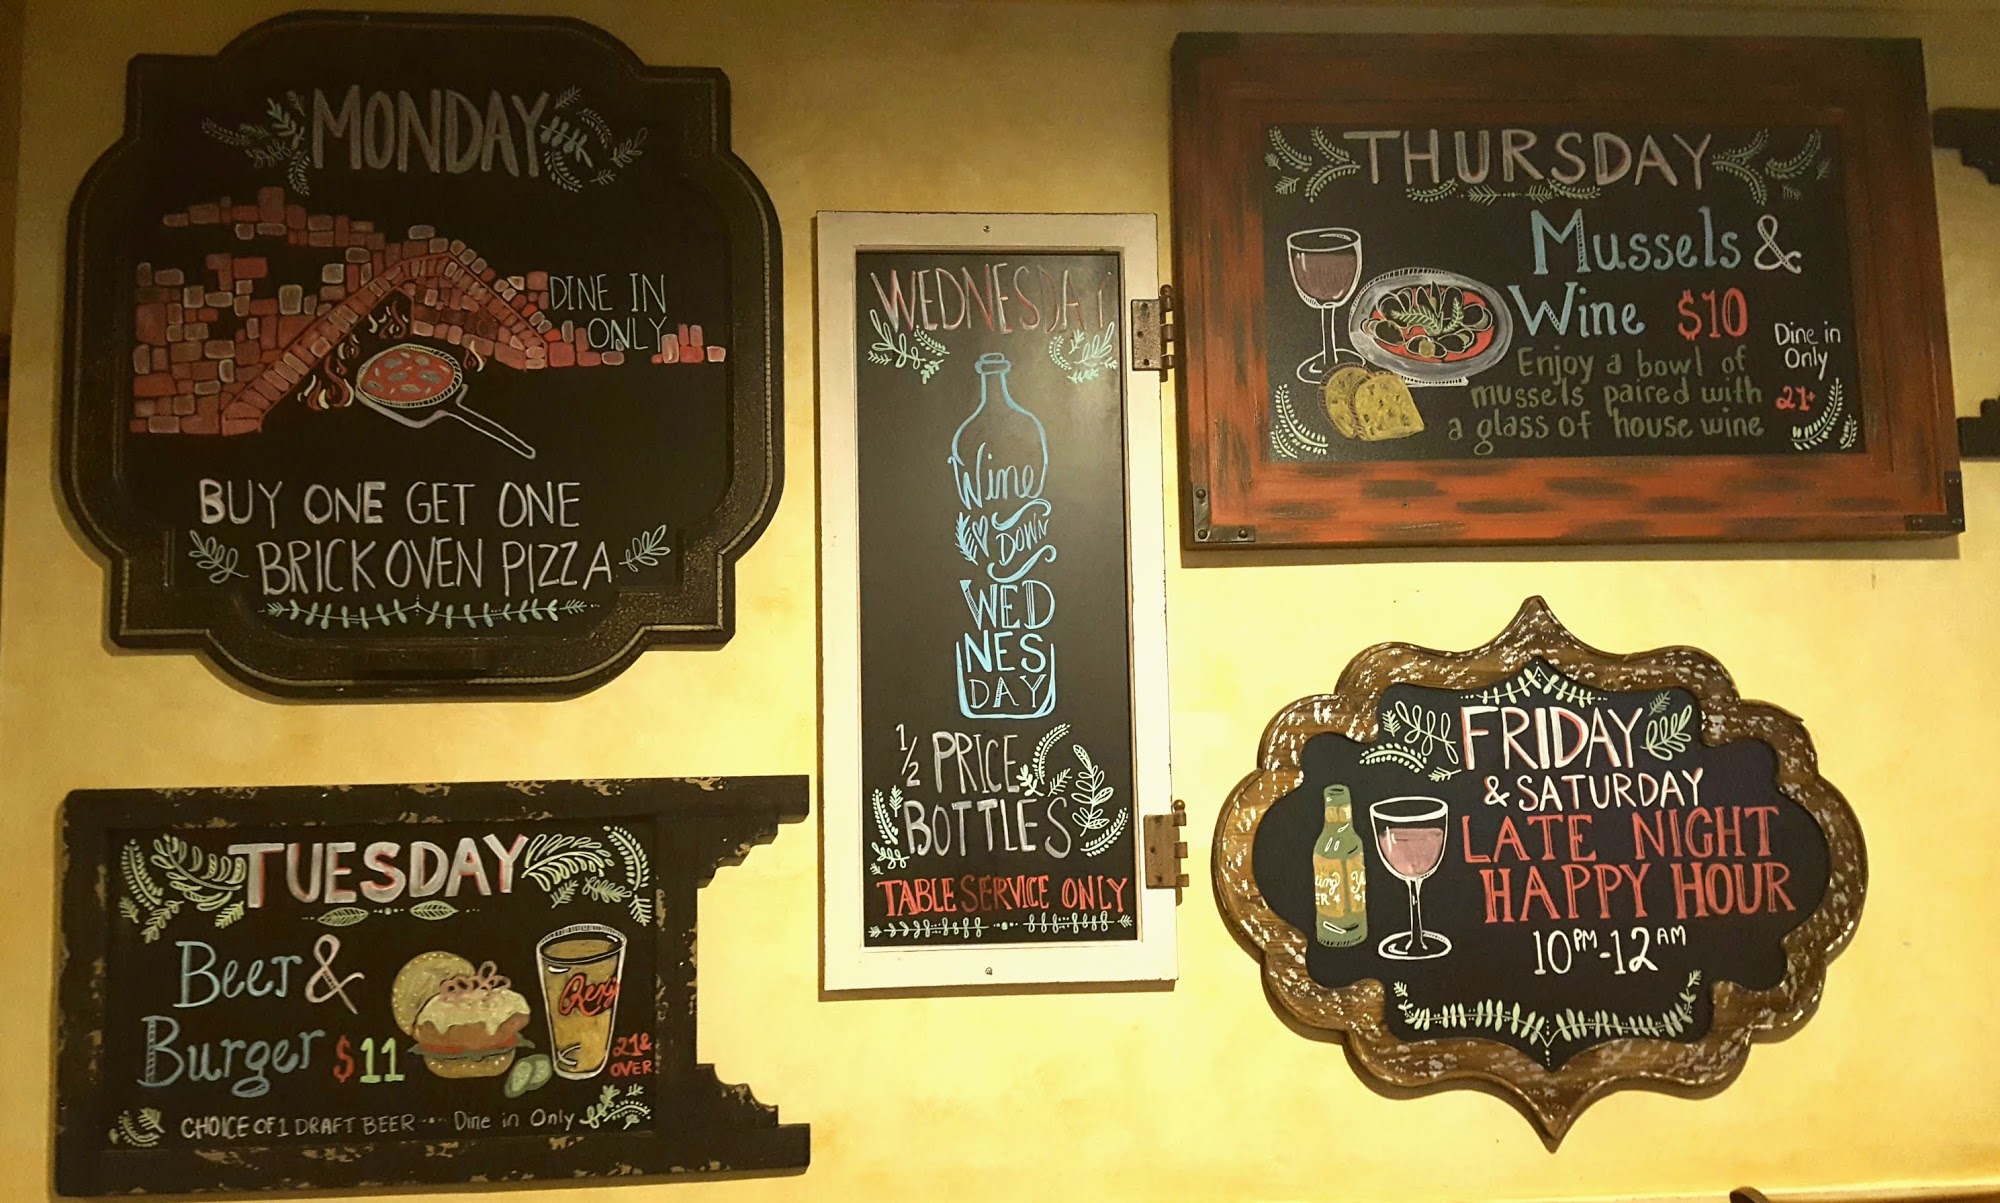 MONDAY
DINE IN
ONLY
BUY ONE GET ONE
BRICK OVEN PIZZA
TUESDAY
Beer &
Burger $11
21 &
OVER
CHOICE OF 1 DRAFT BEER Dine in Only
WEDNESDAY
Wine
DOWN
WED
NES
DAY
1/2 PRICE
BOTTLES
TABLE SERVICE ONLY
THURSDAY
Mussels &
Wine $10
Dine in
Only
21+
Enjoy a bowl of
mussels paired with
a glass of house wine
FRIDAY
& SATURDAY
LATE NIGHT
HAPPY HOUR
10PM-12AM